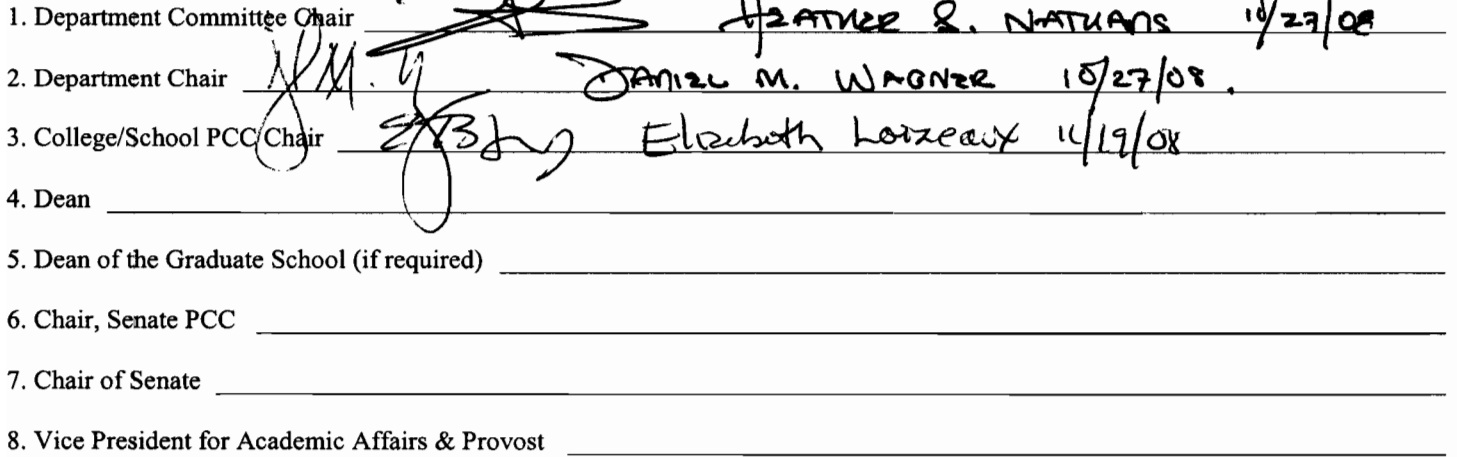 1. Department Committee Chair HEATHER S. NATHANS 10/27/08
2. Department Chair DANIEL M. WAGNER 10/27/08.
3. College/School PCC Chair Elizabeth Loizeaux 11/19/08
4. Dean
5. Dean of the Graduate School (if required)
6. Chair, Senate PCC
7. Chair of Senate
8. Vice President for Academic Affairs & Provost